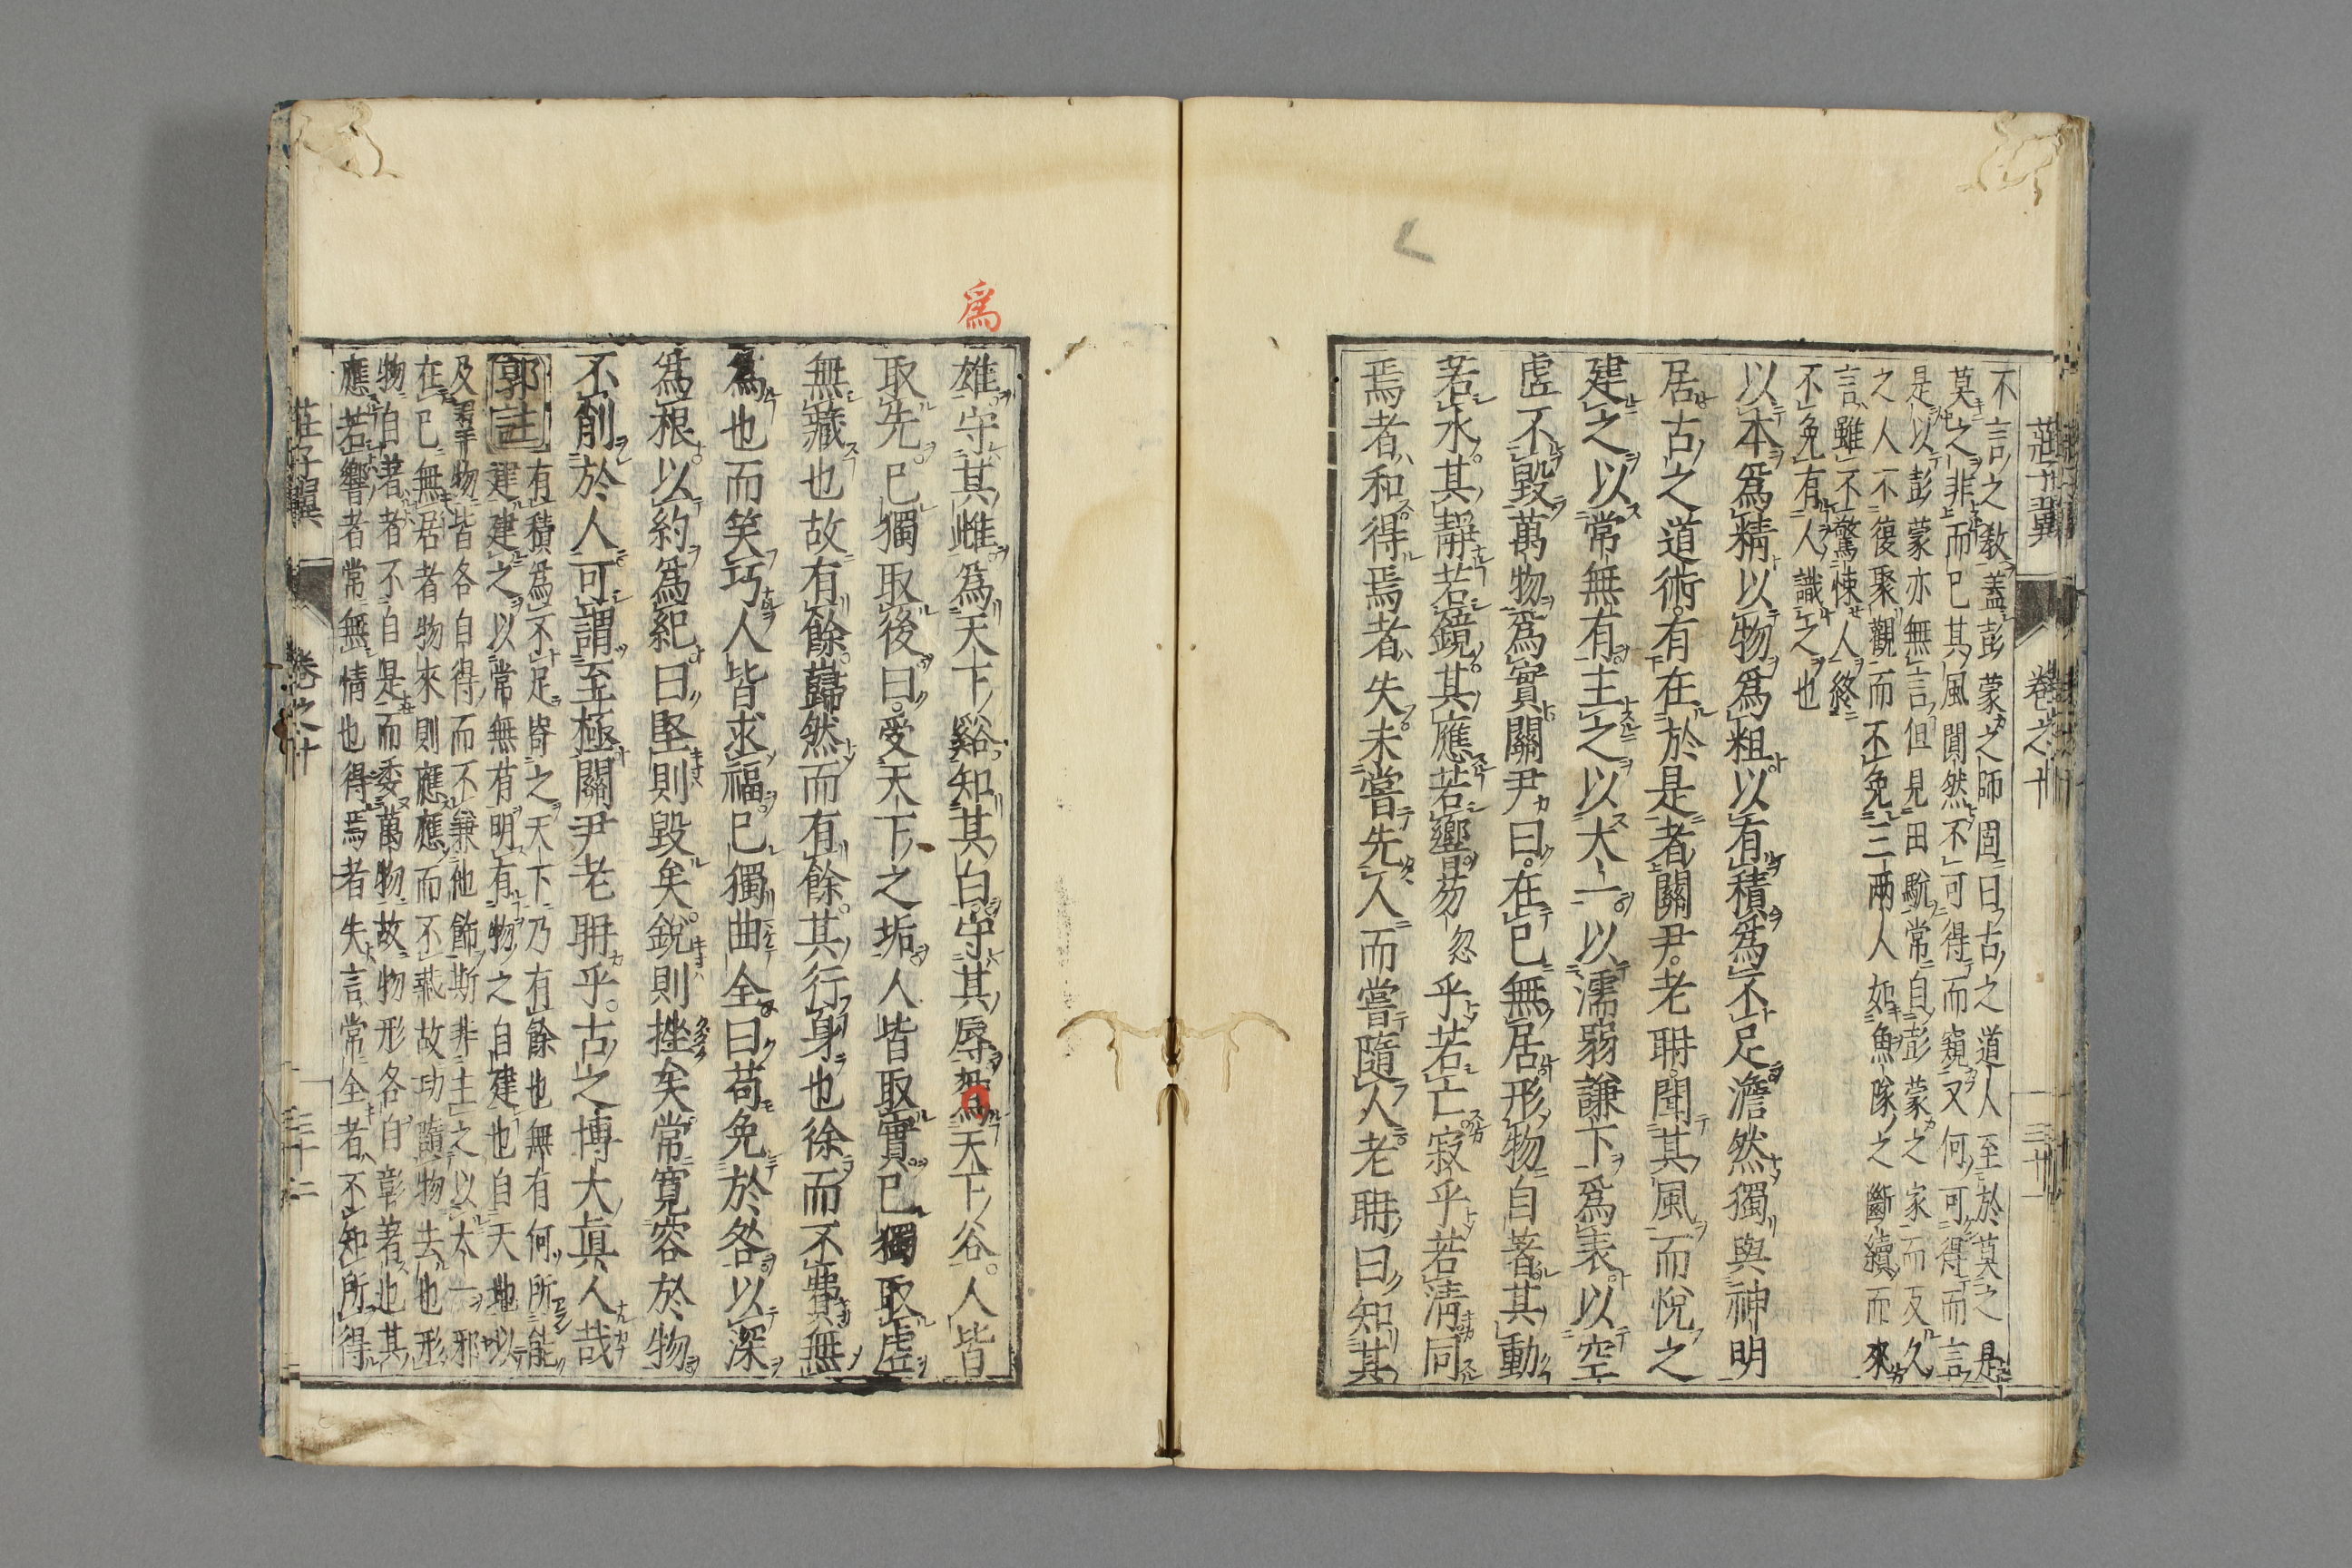 莊子翼 卷之十 三十一
不言之教蓋彭蒙之師固曰古之道人至於莫之是
莫之非而已其風閴然不可得而窺又何可得而言
是以彭蒙亦無言但見田駢常自彭蒙之家而反久
之人不復聚觀而不免三兩人如魚隊之斷續而來
言雖不驚悚人終
不免有人識之也
以本爲精以物爲粗以有積爲不足澹然獨與神明
居古之道術有在於是者關尹老聃聞其風而悅之
建之以常無有主之以大一以濡弱謙下爲表以空
虛不毀萬物爲實關尹曰在已無居形物自著其動
若水其靜若鏡其應若響芴忽乎若亡寂乎若淸同
焉者和得焉者失未嘗先人而嘗隨人老聃曰知其
爲
雄守其雌爲天下谿知其白守其辱爲天下谷人皆
取先已獨取後曰受天下之垢人皆取實已獨取虛
無藏也故有餘巋然而有餘其行身也徐而不費無
爲也而笑巧人皆求福已獨曲全曰苟免於咎以深
爲根以約爲紀曰堅則毀矣銳則挫矣常寬容於物
不削於人可謂至極關尹老聃乎古之博大眞人哉
郭註
有積爲不足皆之天下乃有餘也無有何所能
建建之以常無有明有物之自建也自天地以
及羣物皆各自得而不兼他飾斯非主之以太一邪
在已無居者物來則應應而不藏故功隨物去也形
物自著者不自是而委萬物故物形各自彰著也其
應若響者常無情也得焉者失言常全者不知所得
莊子翼 卷之十 三十二